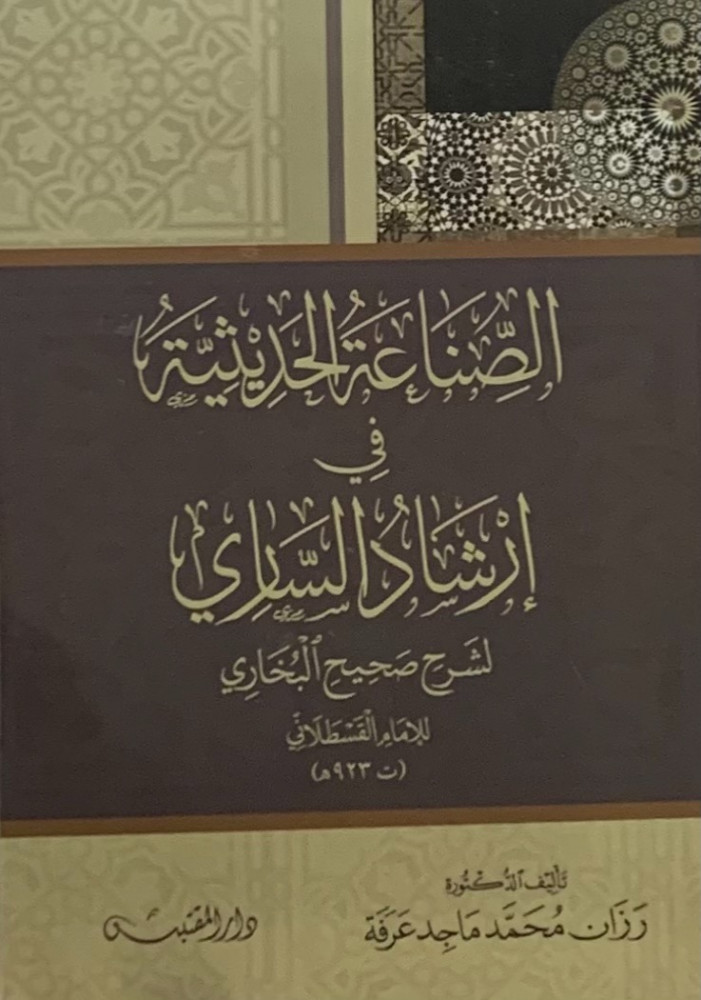 الصِّنَاعَةُ الحَدِيْثِيَّةُ
فِي
إِرْشَادُ السَّارِي
لشَرحِ صَحِيحِ ٱلْبُخَارِي
للإمَامِ القَسْطَلَانِي
(ت ٩٢٣ هـ)
تَأليف ٱلدُّكْتُورَة
رَزَان مُحَمَّد مَاجِد عَرَفَة
دار المقتبس